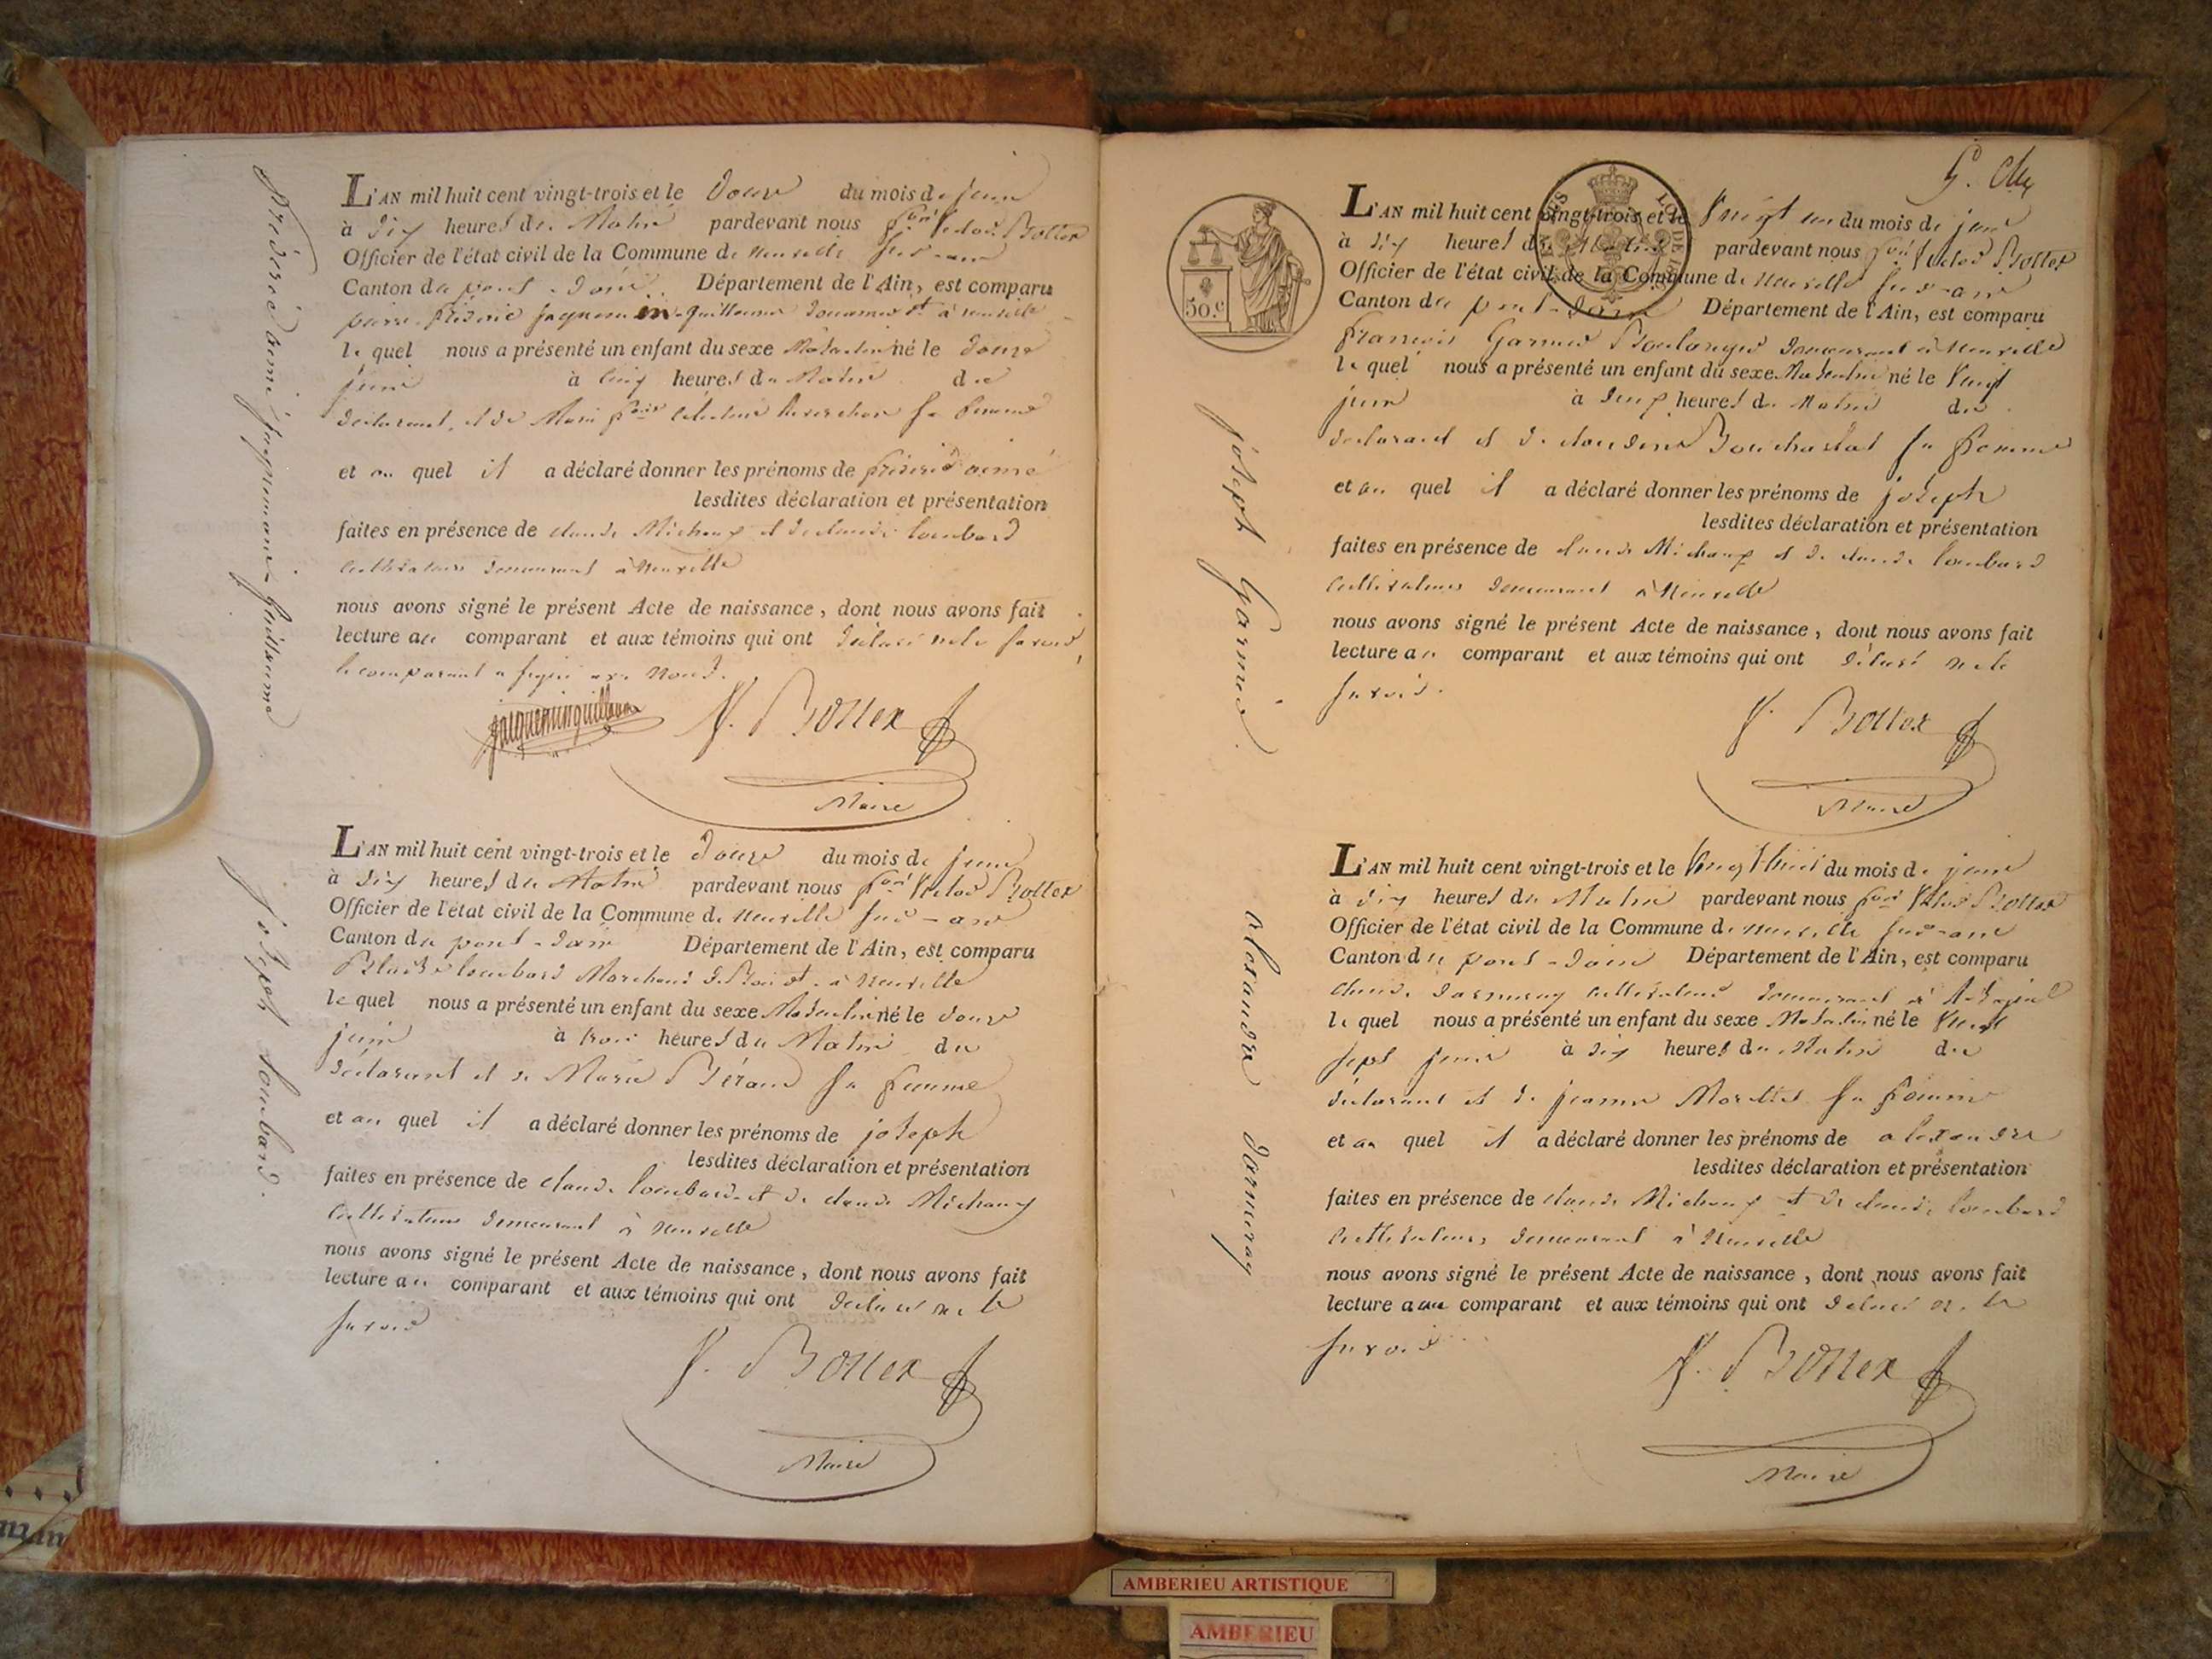 frédéric aimé jacquemin-guillaume
L'AN mil huit cent vingt-trois et le douze du mois de juin
à dix heures du Matin pardevant nous fçois Victor Bottex
Officier de l'état civil de la Commune de Neuville sur-ain
Canton du pont-d'ain Département de l'Ain, est comparu
pierre frédéric jacquemin-guillaume demeurant à neuville
le quel nous a présenté un enfant du sexe Masculin né le douze
juin à cinq heures du Matin du
déclarant, et de Marie fçoise sa femme
et au quel il a déclaré donner les prénoms de frédéric aimé
lesdites déclaration et présentation
faites en présence de claude Michaux et de claude lombard
cultivateurs demeurant à Neuville
nous avons signé le présent Acte de naissance, dont nous avons fait
lecture au comparant et aux témoins qui ont déclaré ne le savoir,
le comparant a signé avec Nous.
jacqueminguillaume V. Bottex
Maire
joseph lombard.
L'AN mil huit cent vingt-trois et le douze du mois de juin
à dix heures du Matin pardevant nous fçois Victor Bottex
Officier de l'état civil de la Commune de Neuville sur-ain
Canton du pont-d'ain Département de l'Ain, est comparu
lombard Marchand à Neuville
le quel nous a présenté un enfant du sexe Masculin né le douze
juin à trois heures du Matin du
déclarant et de Marie Béraud sa femme
et au quel il a déclaré donner les prénoms de joseph
lesdites déclaration et présentation
faites en présence de claude lombard et de claude Michaux
cultivateurs demeurant à Neuville
nous avons signé le présent Acte de naissance, dont nous avons fait
lecture au comparant et aux témoins qui ont déclaré ne le
savoir
V. Bottex
Maire
50.c
joseph Garnier.
L'AN mil huit cent vingt-trois et le Vingt un du mois de juin
à dix heures du Matin pardevant nous fçois Victor Bottex
Officier de l'état civil de la Commune de Neuville sur-ain
Canton du pont-d'ain Département de l'Ain, est comparu
françois Garnier Boulanger demeurant à Neuville
le quel nous a présenté un enfant du sexe Masculin né le Vingt
juin à deux heures du Matin du
déclarant et de claudine Bouchardat sa femme
et au quel il a déclaré donner les prénoms de joseph
lesdites déclaration et présentation
faites en présence de claude Michaux et de claude lombard
cultivateurs demeurant à Neuville
nous avons signé le présent Acte de naissance, dont nous avons fait
lecture au comparant et aux témoins qui ont déclaré ne le
savoir.
V. Bottex
Maire
alexandre Darmeray
L'AN mil huit cent vingt-trois et le Vingt huit du mois de juin
à dix heures du Matin pardevant nous fçois Victor Bottex
Officier de l'état civil de la Commune de Neuville sur-ain
Canton du pont-d'ain Département de l'Ain, est comparu
claude Darmeray cultivateur demeurant à
le quel nous a présenté un enfant du sexe Masculin né le Vingt
sept juin à dix heures du Matin du
déclarant et de jeanne Morellet sa femme
et au quel il a déclaré donner les prénoms de alexandre
lesdites déclaration et présentation
faites en présence de claude Michaux et de claude lombard
cultivateurs demeurant à Neuville
nous avons signé le présent Acte de naissance, dont nous avons fait
lecture au comparant et aux témoins qui ont déclaré ne le
savoir
V. Bottex
Maire
AMBERIEU ARTISTIQUE
AMBERIEU